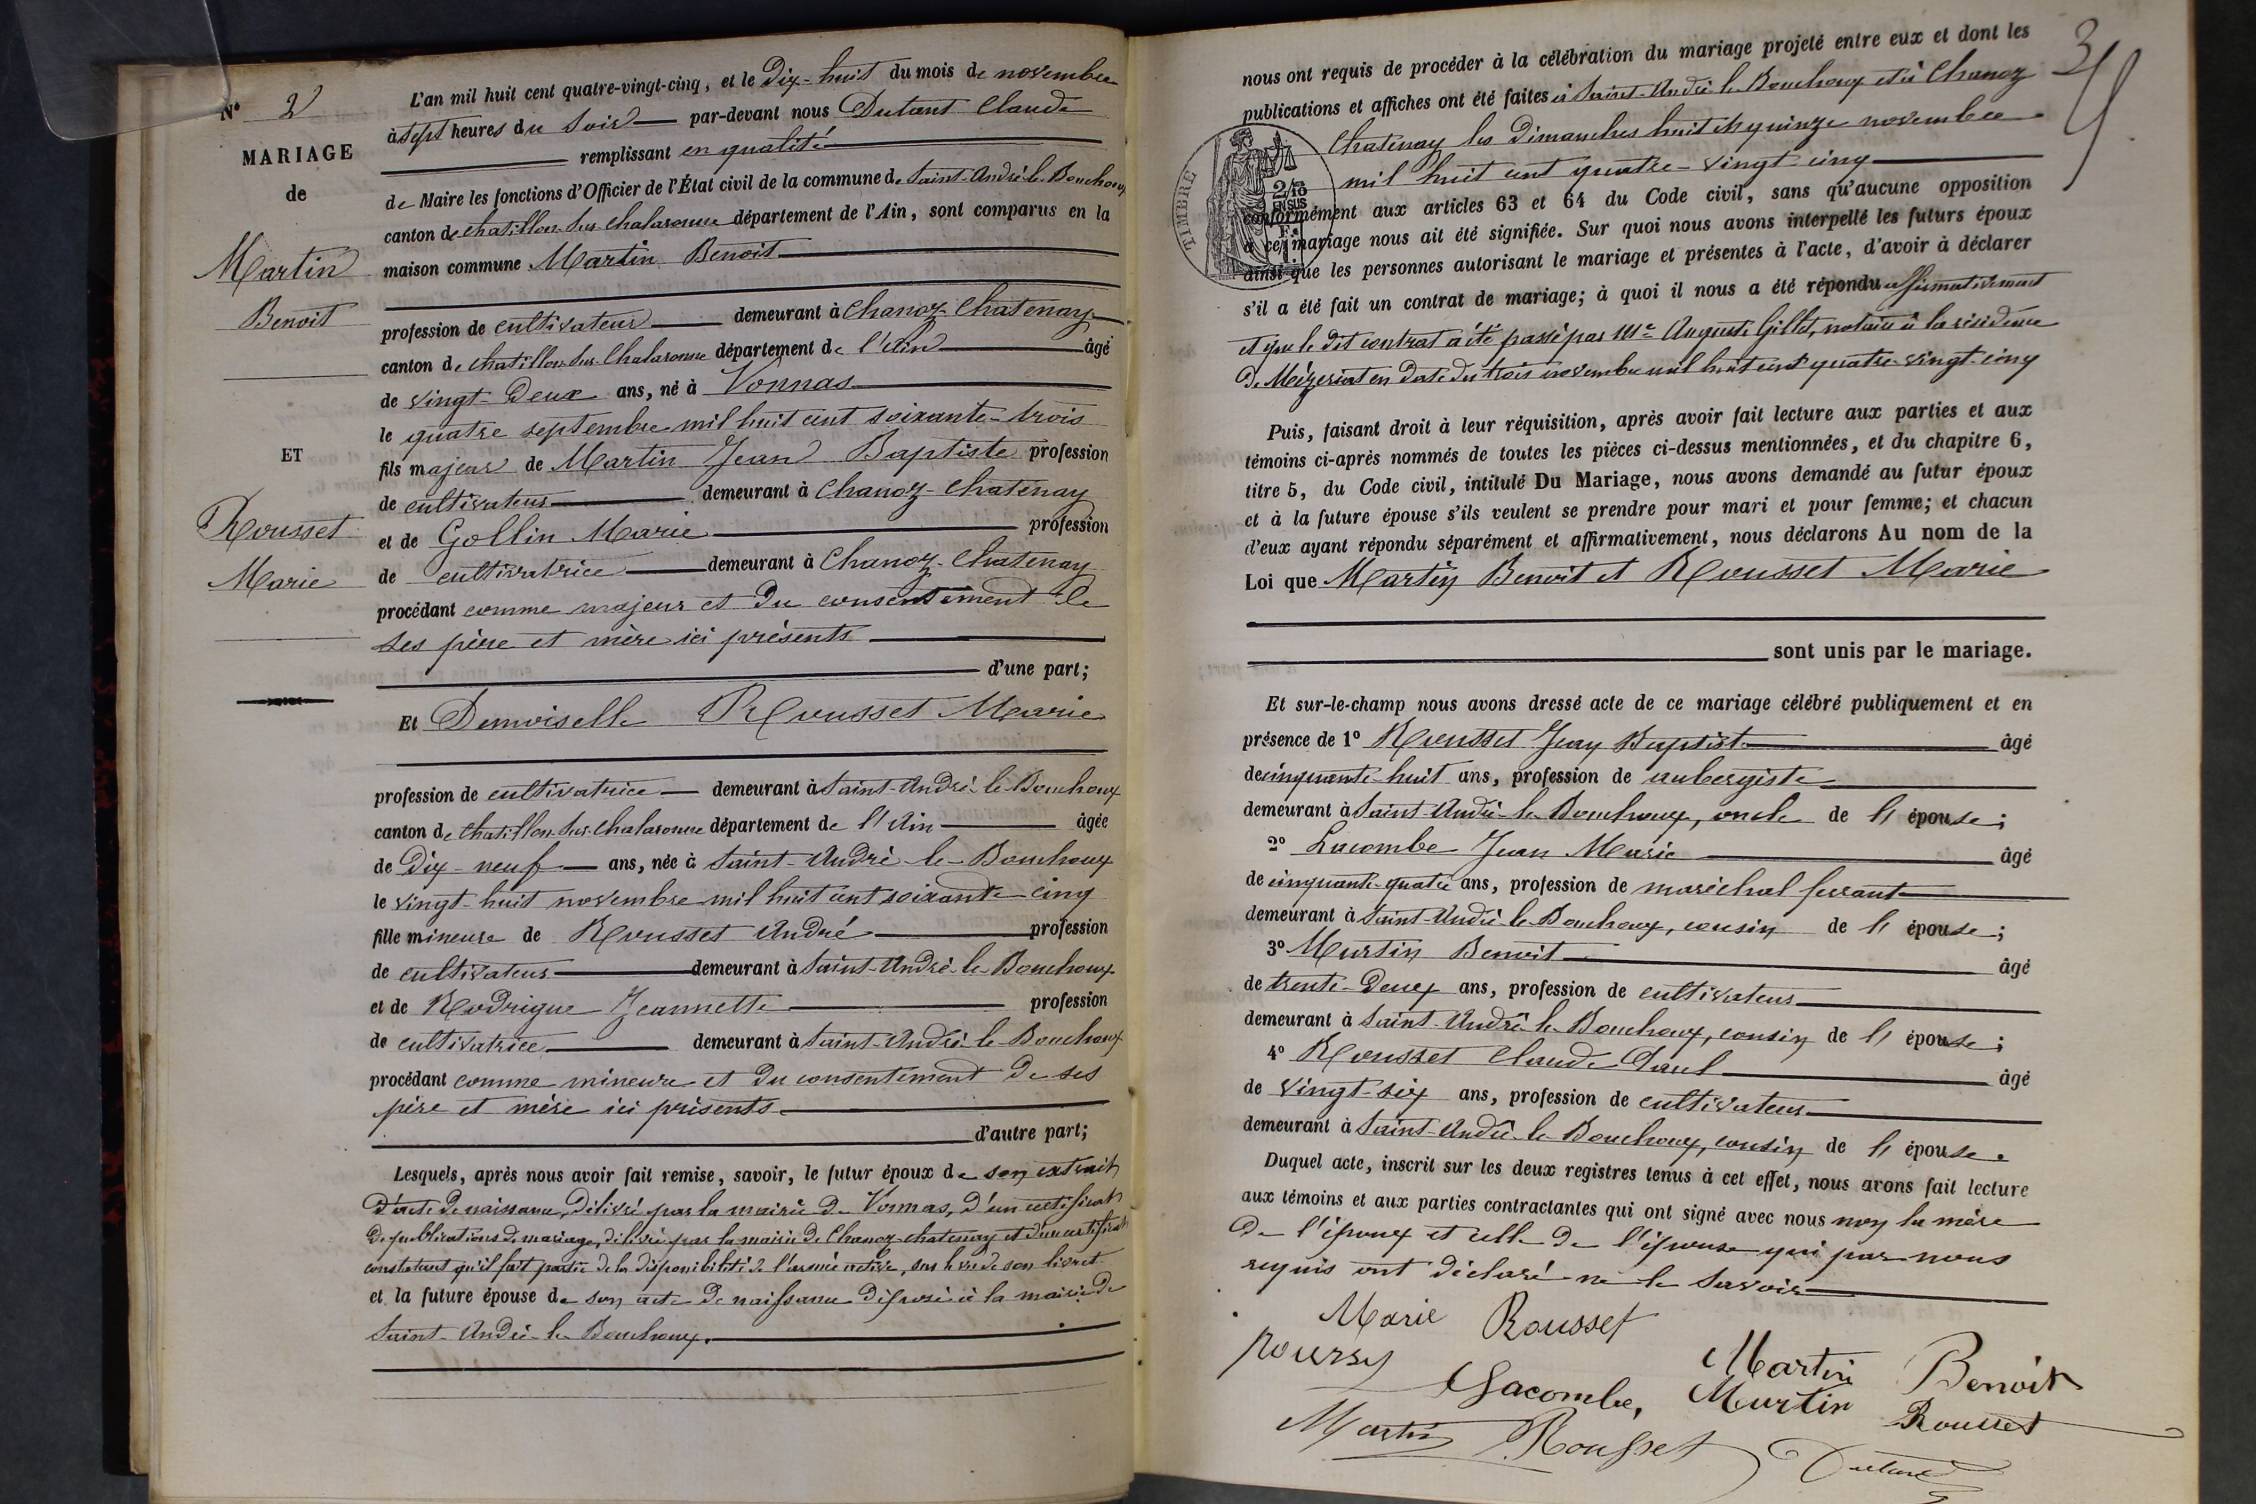 N° 2
MARIAGE
de
Martin
Benoit
ET
Rousset
Marie
L'an mil huit cent quatre-vingt-cinq, et le Dix-huit du mois de novembre
à sept heures du soir par-devant nous Dutant Claude
remplissant en qualité
de Maire les fonctions d'Officier de l'État civil de la commune de Saint-André-le-Bouchoux
canton de Chatillon-sur-Chalaronne département de l'Ain, sont comparus en la
maison commune Martin Benoit
profession de cultivateur demeurant à Chanoz-Chatenay
canton de Chatillon-sur-Chalaronne département de l'Ain âgé
de vingt-Deux ans, né à Vonnas
le quatre septembre mil huit cent soixante-trois
fils majeur de Martin Jean Baptiste profession
de cultivateur demeurant à Chanoz-Chatenay
et de Gollin Marie profession
de cultivatrice demeurant à Chanoz-Chatenay
procédant comme majeur et du consentement de
ses père et mère ici présents
d'une part;
Et Demoiselle Rousset Marie
profession de cultivatrice demeurant à Saint-André-le-Bouchoux
canton de Chatillon-sur-Chalaronne département de l'Ain âgée
de Dix-neuf ans, née à Saint-André-le-Bouchoux
le vingt-huit novembre mil huit cent soixante-cinq
fille mineure de Rousset André profession
de cultivateur demeurant à Saint-André-le-Bouchoux
et de Rodrigue Jeannette profession
de cultivatrice demeurant à Saint-André-le-Bouchoux
procédant comme mineure et du consentement de ses
père et mère ici présents
d'autre part;
Lesquels, après nous avoir fait remise, savoir, le futur époux de son extrait
d'acte de naissance, délivré par la mairie de Vonnas, d'un certificat
de publications de mariage, délivré par la mairie de Chanoz-Chatenay et d'un certificat
constatant qu'il fait partie de la disponibilité de l'armée active, sur le vu de son livret
et la future épouse de son acte de naissance déposé à la mairie de
Saint-André-le-Bouchoux.
nous ont requis de procéder à la célébration du mariage projeté entre eux et dont les
publications et affiches ont été faites à Saint-André-le-Bouchoux et à Chanoz
Chatenay les Dimanches huit et quinze novembre
mil huit cent quatre-vingt-cinq
conformément aux articles 63 et 64 du Code civil, sans qu'aucune opposition
à ce mariage nous ait été signifiée. Sur quoi nous avons interpellé les futurs époux
ainsi que les personnes autorisant le mariage et présentes à l'acte, d'avoir à déclarer
s'il a été fait un contrat de mariage; à quoi il nous a été répondu affirmativement
et que le dit contrat a été passé par Me Auguste Gillet, notaire à la résidence
de Mézeriat en date du trois novembre mil huit cent quatre-vingt-cinq
TIMBRE
2/10
EN SUS
Puis, faisant droit à leur réquisition, après avoir fait lecture aux parties et aux
témoins ci-après nommés de toutes les pièces ci-dessus mentionnées, et du chapitre 6,
titre 5, du Code civil, intitulé Du Mariage, nous avons demandé au futur époux
et à la future épouse s'ils veulent se prendre pour mari et pour femme; et chacun
d'eux ayant répondu séparément et affirmativement, nous déclarons Au nom de la
Loi que Martin Benoit et Rousset Marie
sont unis par le mariage.
Et sur-le-champ nous avons dressé acte de ce mariage célébré publiquement et en
présence de 1° Rousset Jean Baptiste âgé
de cinquante-huit ans, profession de aubergiste
demeurant à Saint-André-le-Bouchoux, oncle de l'épouse;
2° Lacombe Jean Marie âgé
de cinquante-quatre ans, profession de maréchal ferrant
demeurant à Saint-André-le-Bouchoux, cousin de l'épouse;
3° Murtin Benoit âgé
de trente-Deux ans, profession de cultivateur
demeurant à Saint-André-le-Bouchoux, cousin de l'épouse;
4° Rousset Claude Paul âgé
de vingt-six ans, profession de cultivateur
demeurant à Saint-André-le-Bouchoux, cousin de l'épouse.
Duquel acte, inscrit sur les deux registres tenus à cet effet, nous avons fait lecture
aux témoins et aux parties contractantes qui ont signé avec nous non la mère
de l'époux et celle de l'épouse qui par nous
requis ont déclaré ne le savoir
Marie Rousset
Martin Benoit
Lacombe, Murtin Rousset
Martin Rousset Dutant